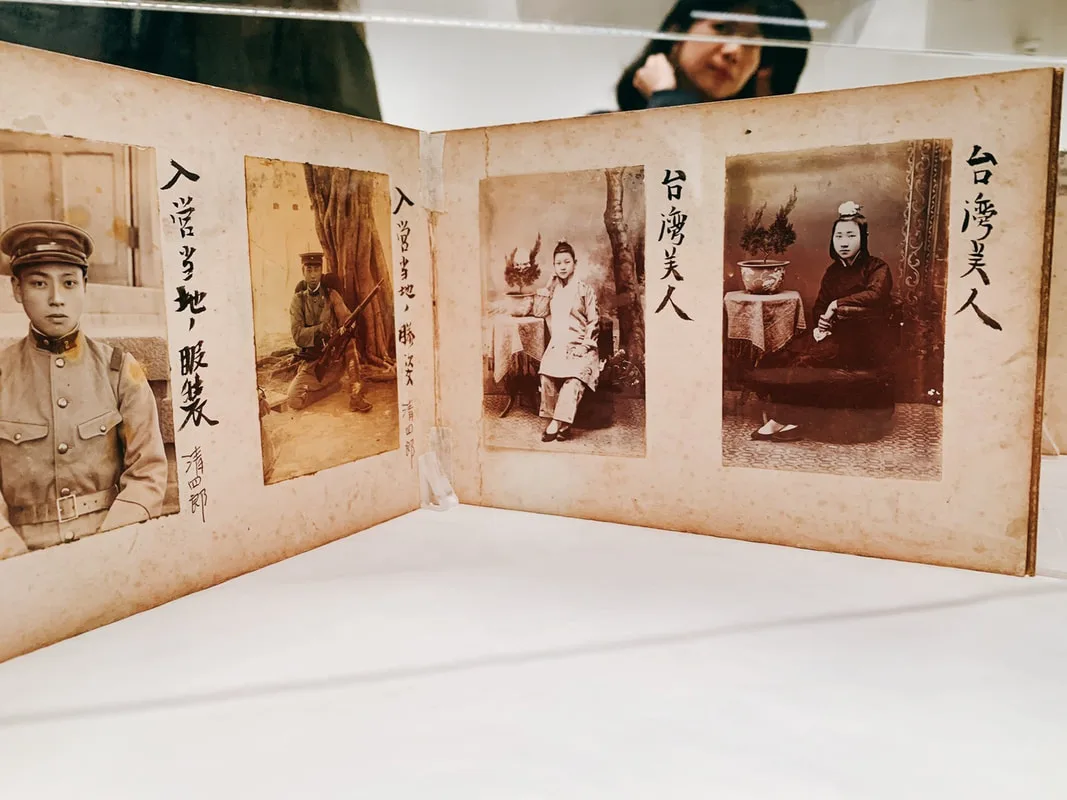 入営当地ノ服装
清四郎
入営当地ノ勝姿
清四郎
台湾美人
台湾美人